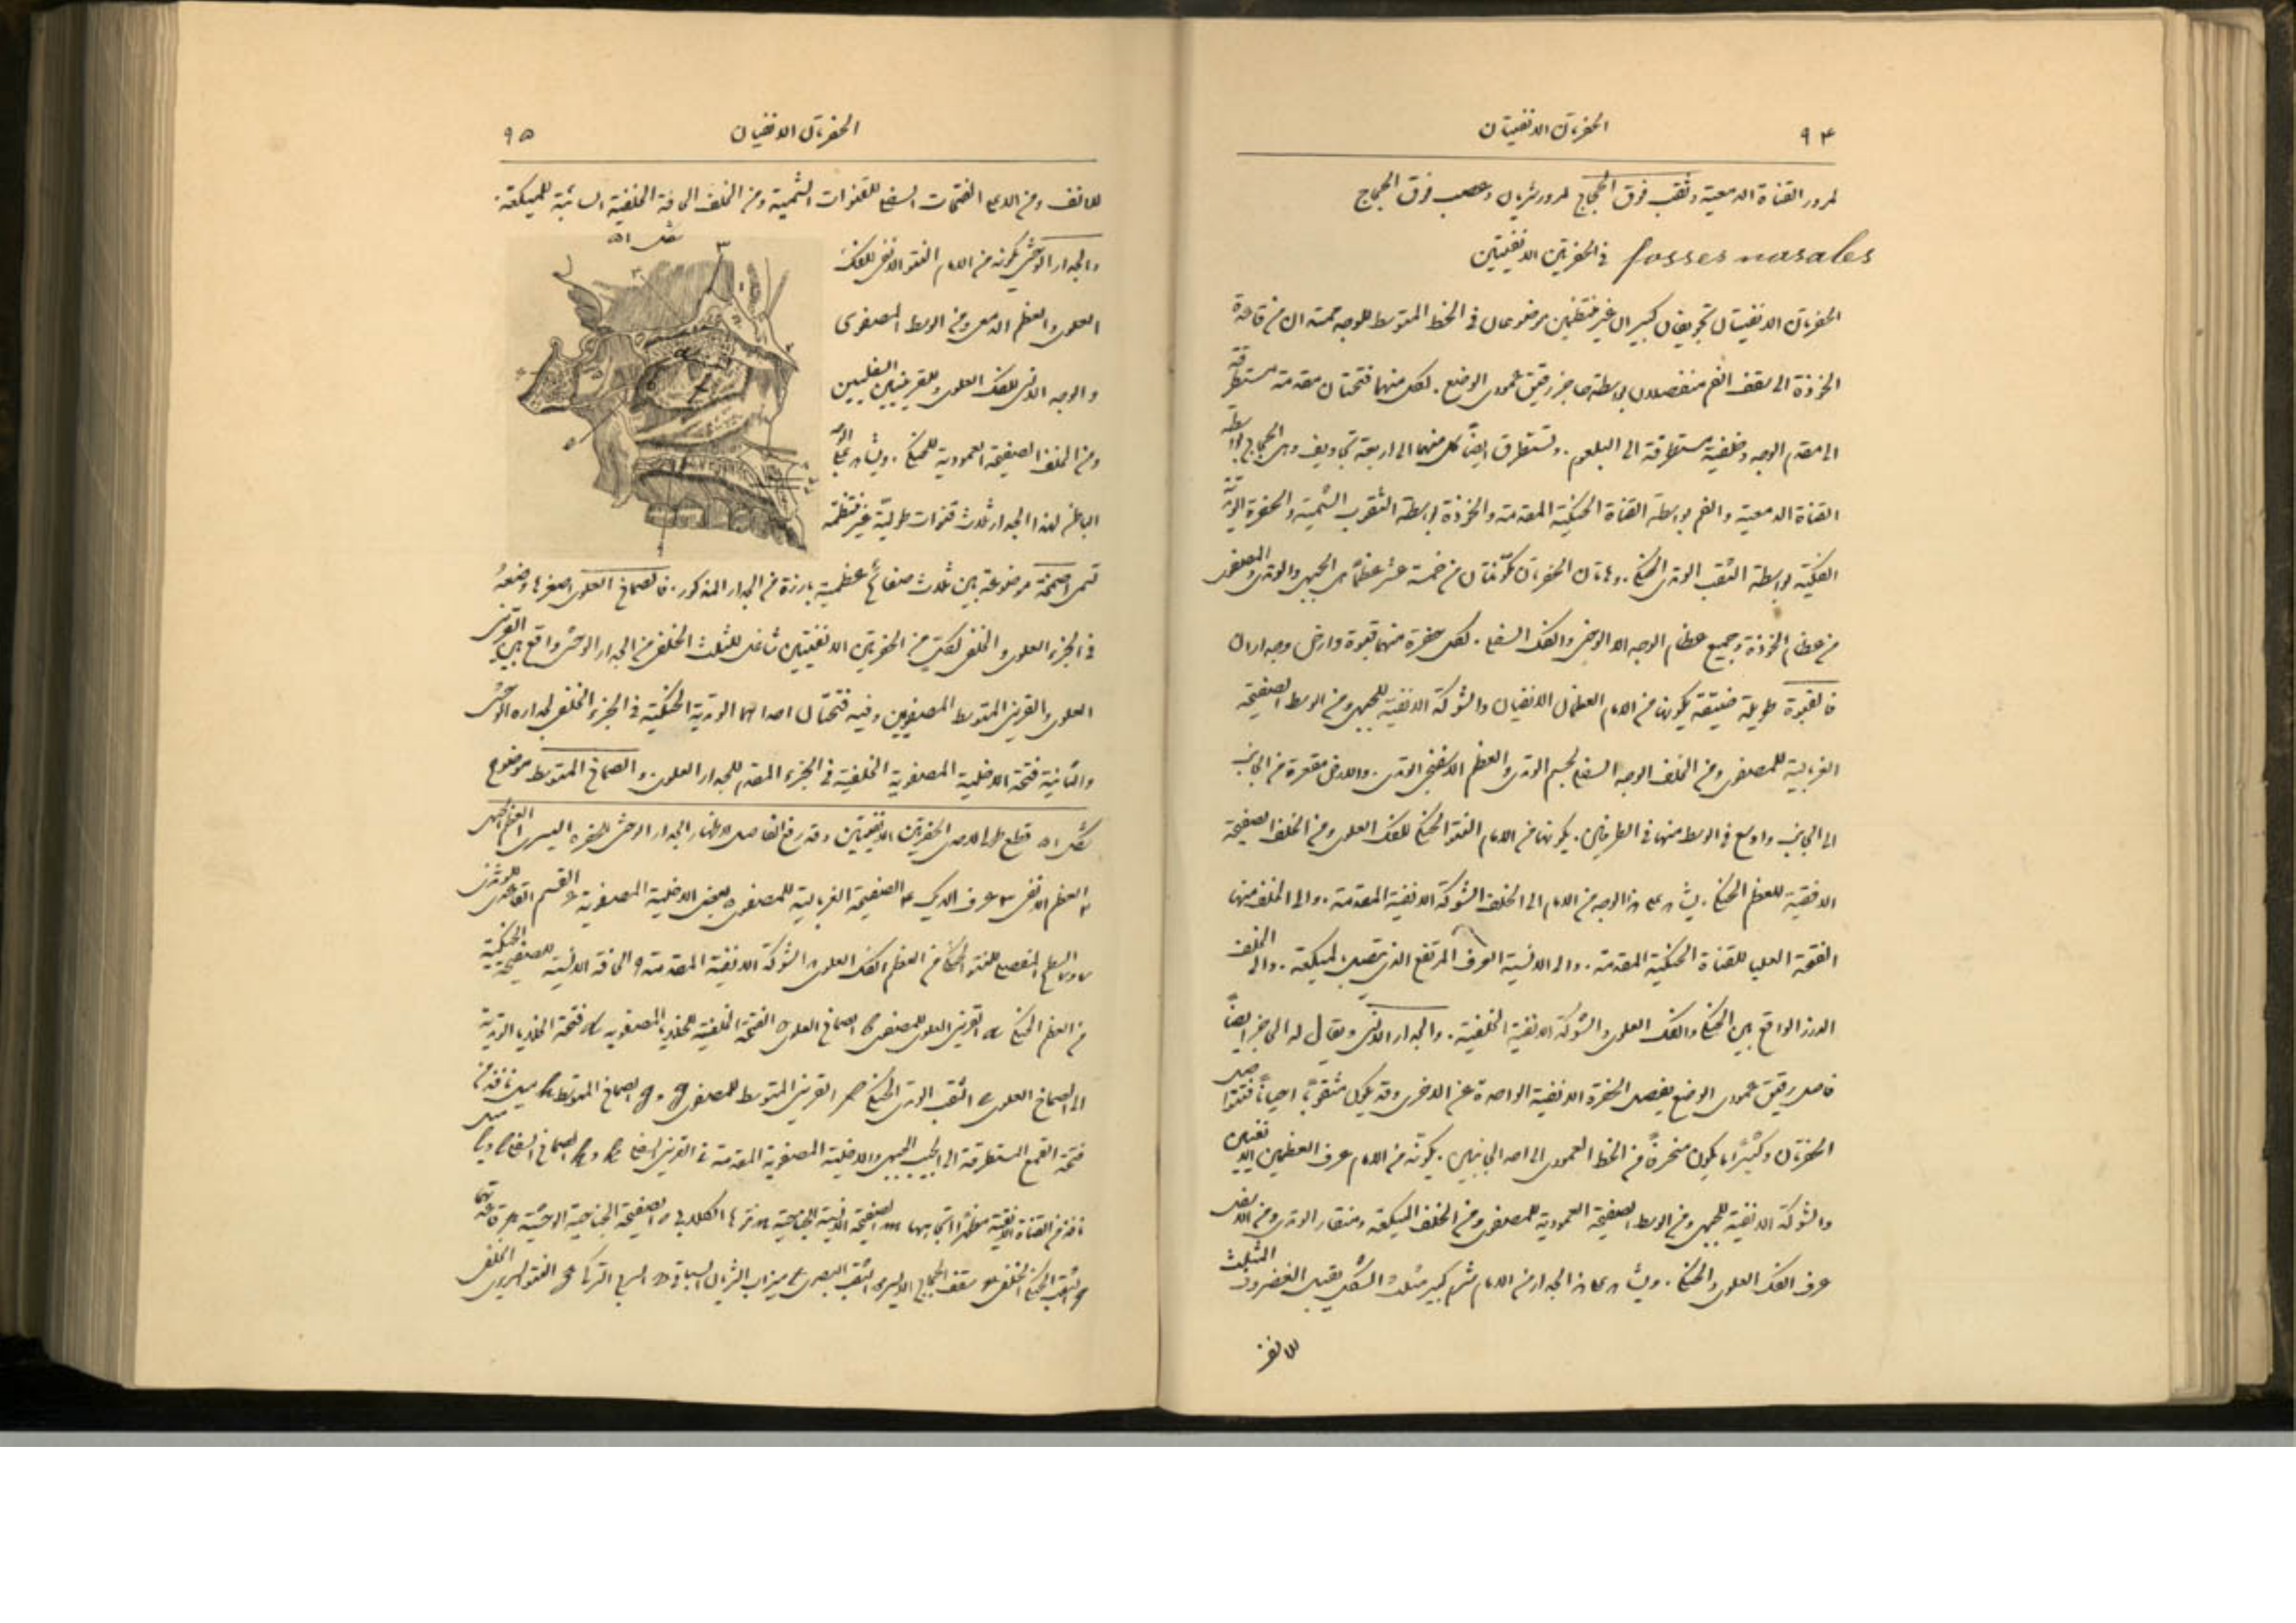 ٩٤ الحفرتان الانفيتان
لمرور القناة الدمعية وثقب فوق الحجاج لمرور شريان وعصب فوق الحجاج
fosses nasales في الحفرتين الانفيتين
الحفرتان الانفيتان تجويفان كبيران غير منتظمين موضوعان في الخط المتوسط للوجه ممتدان من قاعدة
الخوذة الى سقف الفم منفصلان بواسطة حاجز رقيق عمودي الوضع. لكل منهما فتحتان مقدمة مستطرقة
الى مقدم الوجه وخلفية مستطرقة الى البلعوم. وتستطرق ايضًا كل منهما الى اربعة تجاويف وهي الحجاج بواسطة
القناة الدمعية والفم بواسطة القناة الحنكية المقدمة والخوذة بواسطة الثقوب الشمية والحفرة الوتدية
الفكية بواسطة الثقب الوتدي الحنكي. وهاتان الحفرتان مكونتان من خمسة عشر عظمًا هي الجبهي والوتدي والمصفوي
من عظام الخوذة وجميع عظام الوجه الا الوجني والفك السفلي. لكل حفرة منهما قبوة وارض وجداران
فالقبوة طويلة ضيقة يكونها من الامام العظمان الانفيان والشوكة الانفية للجبهي ومن الوسط الصفيحة
الغربالية للمصفوي ومن الخلف الوجه السفلي لجسم الوتدي والعظم الاسفنجي الوتدي. والارض مقعرة من الجانب
الى الجانب واوسع في الوسط منها في الطرفين. يكونها من الامام النتو الحنكي للفك العلوي ومن الخلف الصفيحة
الافقية للعظم الحنكي. يشاهد على هذا الوجه من الامام الى الخلف الشوكة الانفية المقدمة. والى الخلف منها
الفتحة العليا للقناة الحنكية المقدمة. والى الانسية العرف المرتفع الذي يتصل بالميكعة. والى الخلف
الدرز الواقع بين الحنكي والفك العلوي والشوكة الانفية الخلفية. والجدار الانسي ويقال له الحاجز ايضًا
فاصل رقيق عمودي الوضع يفصل الحفرة الانفية الواحدة عن الاخرى وقد يكون مثقوبًا احيانًا فتتواصل
الحفرتان وكثيرًا ما يكون منحرفًا من الخط العمودي الى احد الجانبين. يكونه من الامام عرف العظمين الانفيين
والشوكة الانفية للجبهي ومن الوسط الصفيحة العمودية للمصفوي ومن الخلف الميكعة ومنقار الوتدي ومن الاسفل
عرف الفك العلوي والحنكي. ويشاهد على هذا الجدار من الامام شرم كبير مثلث الشكل يقبل الغضروف المثلث
للانف
الحفرتان الانفيتان ٩٥
للانف ومن الاعلى الفتحات السفلى للقنوات الشمية ومن الخلف الحافة الخلفية السائبة للميكعة.
شكل ٥١
والجدار الوحشي يكونه من الامام النتو الانفي للفك
العلوي والعظم الدمعي ومن الوسط المصفوي
والوجه الانسي للفك العلوي والقرينيين السفليين
ومن الخلف الصفيحة العمودية للحنكي. ويشاهد على الوجه
الباطن لهذا الجدار ثلاث قنوات طولية غير منتظمة
تسمى اصمخة موضوعة بين ثلاث صفائح عظمية بارزة من الجدار المذكور. فالصماخ العلوي اصغرها وضعهُ
في الجزء العلوي والخلفي لكل من الحفرتين الانفيتين شاغل للثلث الخلفي من الجدار الوحشي واقع بين القرين
العلوي والقرين المتوسط المصفويين وفيه فتحتان احداهما الوتدية الحنكية في الجزء الخلفي لجداره الوحشي
والثانية فتحة الاخلية المصفوية الخلفية في الجزء المقدم للجدار العلوي. والصماخ المتوسط موضوع
شكل ٥١ قطع الى احدى الحفرتين الانفيتين وقد رفع الفاصل لاظهار الجدار الوحشي للحفرة اليسرى ١ العظم الجبهي
٢ العظم الانفي ٣ عرف الديك ٤ الصفيحة الغربالية للمصفوي ٥ بعض الاخلية المصفوية ٦ القسم القاعدي للوتدي
من العظم الحنكي a القرين العلوي للمصفوي b الصماخ العلوي c الفتحة الخلفية للخلايا المصفوية d فتحة الخلايا الوتدية
الى الصماخ العلوي e الثقب الوتدي الحنكي f القرين المتوسط للمصفوي g و g الصماخ المتوسط h
فتحة القمع المستطرقة الى الجيب الجبهي والاخلية المصفوية المقدمة i القرين السفلي k و k الصماخ السفلي